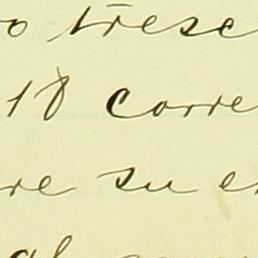 o trese
18 corre
re su e